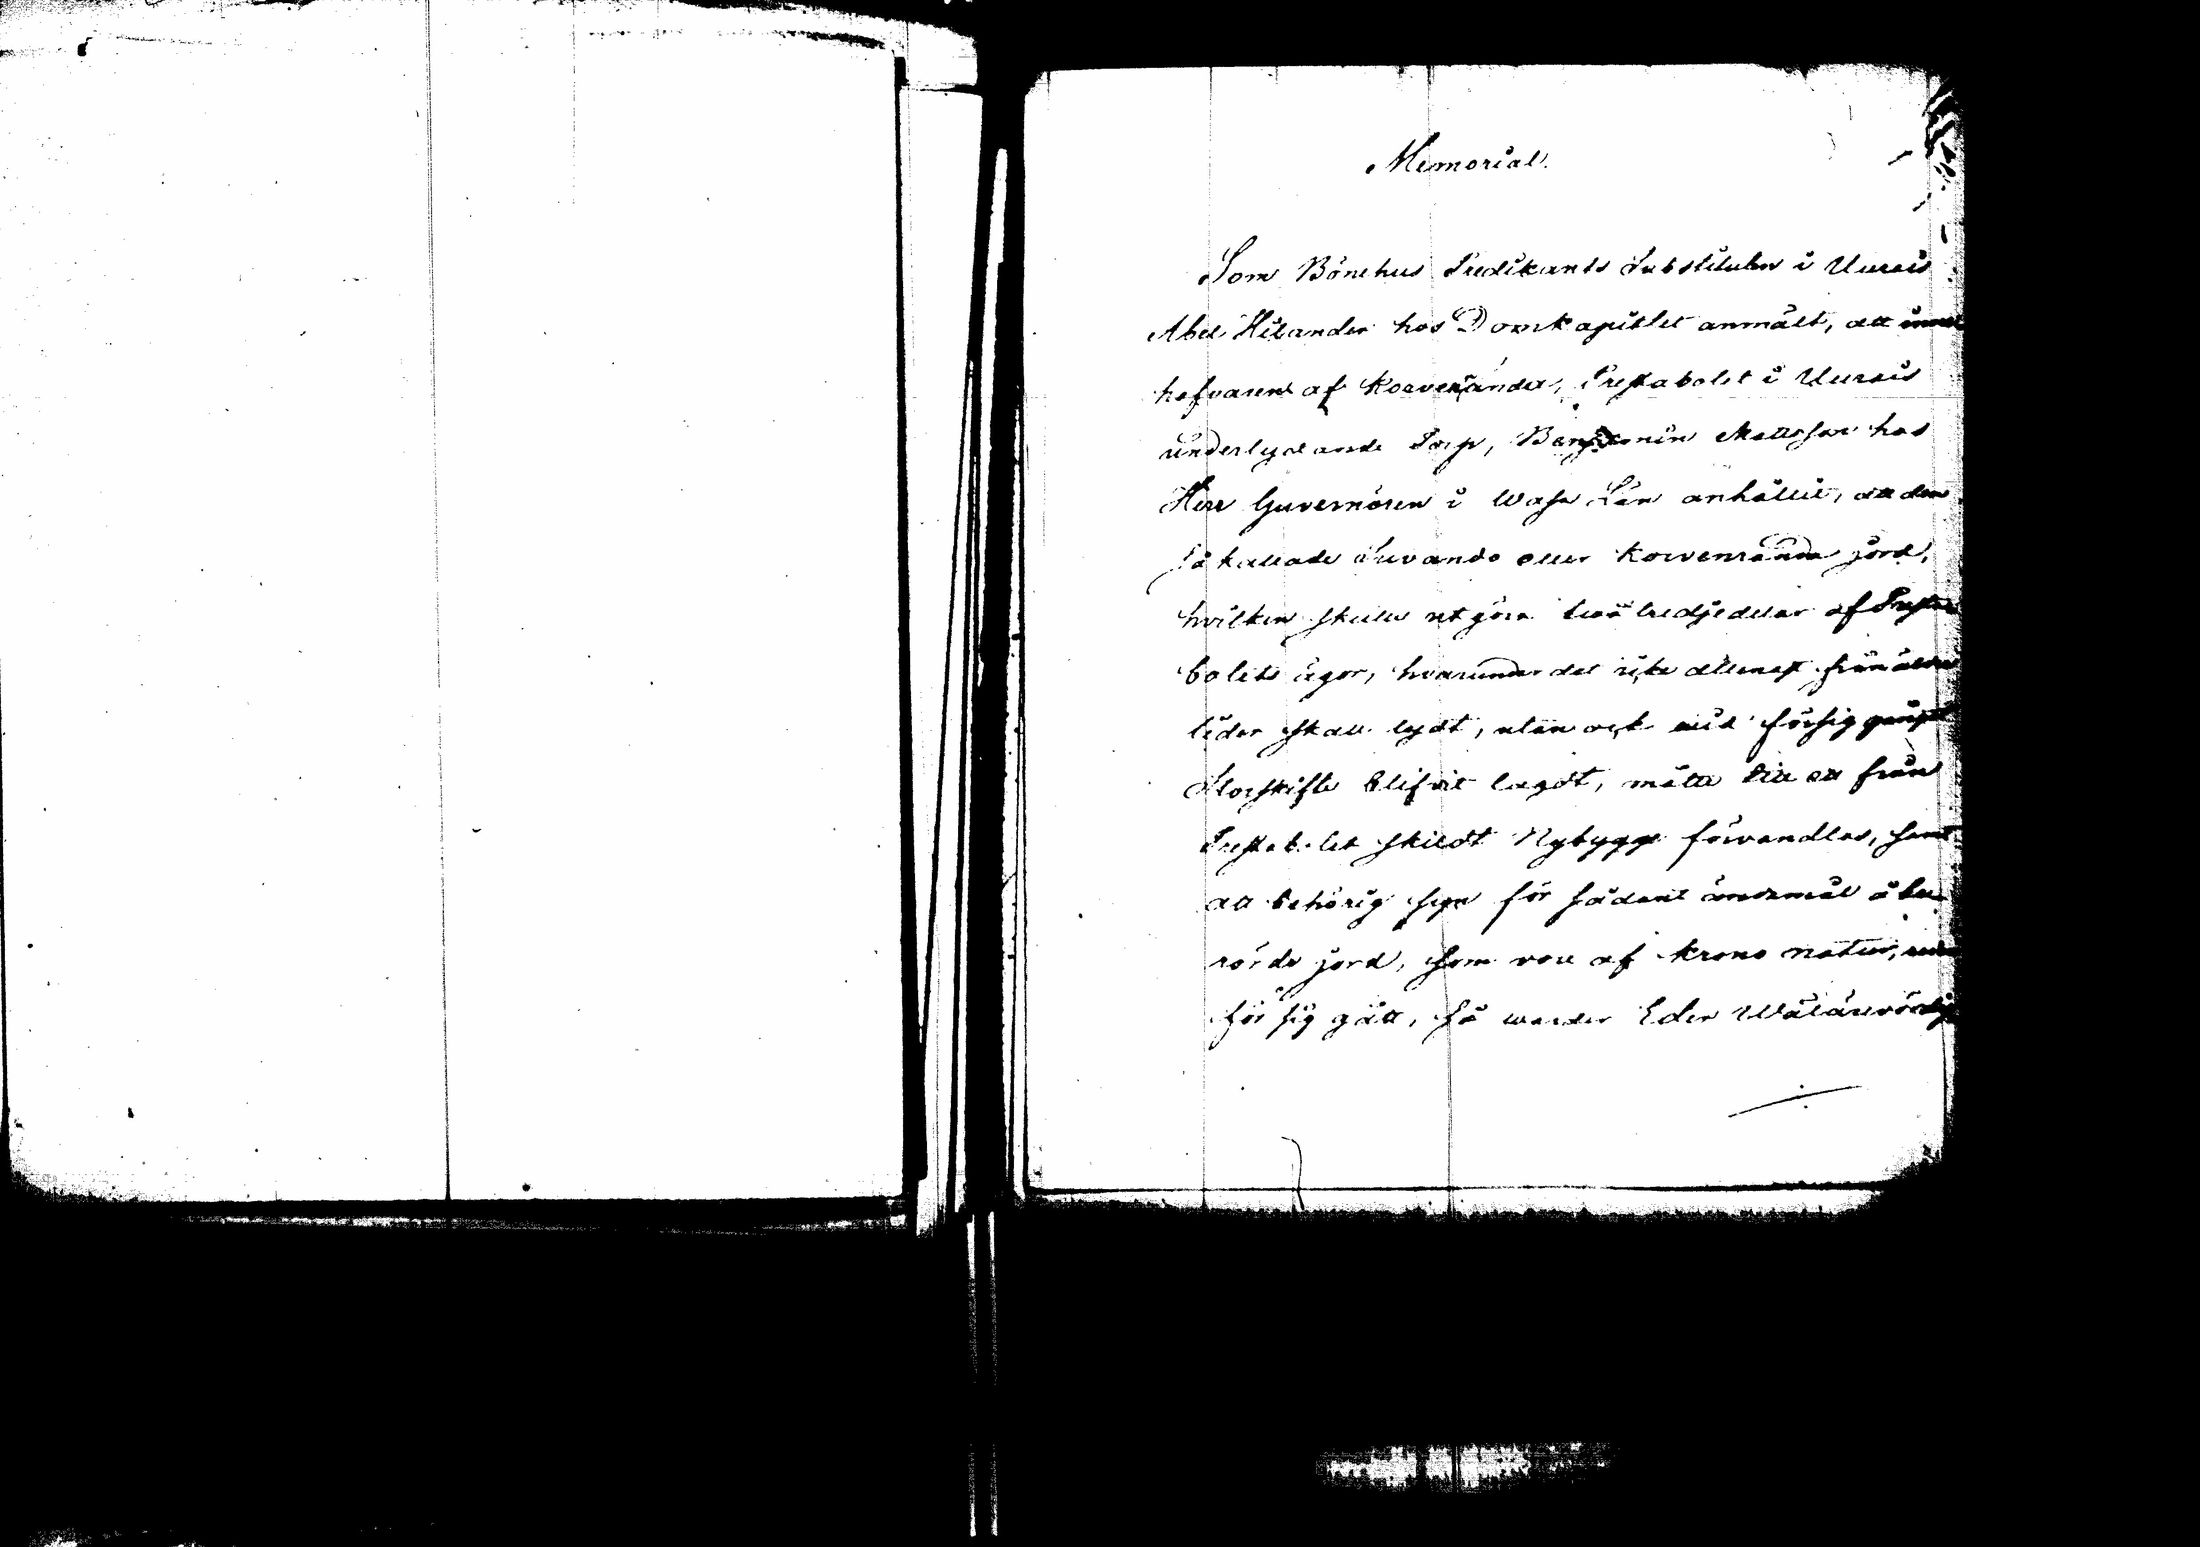 Memorial.
Som Bönehus Predikants Substituten i Uurais
Abel Hilander hos Domkapitlet anmält, att inne
hafvaren af Korvenranda, Prestabolet i Uurais
underlydande Torp, Benjamin Mattsson hos
Herr Guvernören i Wasa Län anhållit, att den
så kallade Suvando eller Korvenranda jord,
hvilken skulle utgöra två tredjedelar af Presta
bolets ägor, hvarunder det icke allenast från äldre
tider skall lydt, utan ock vid försiggånget
Storskifte blifvit lagdt, måtte till ett från
Prestabolet skildt Nybygge förvandlas, samt
att behörig syn för sådant ändamål å be
rörde jord, som vore af Krono natur,
för sig gått, så warder Eder Wälärevördig